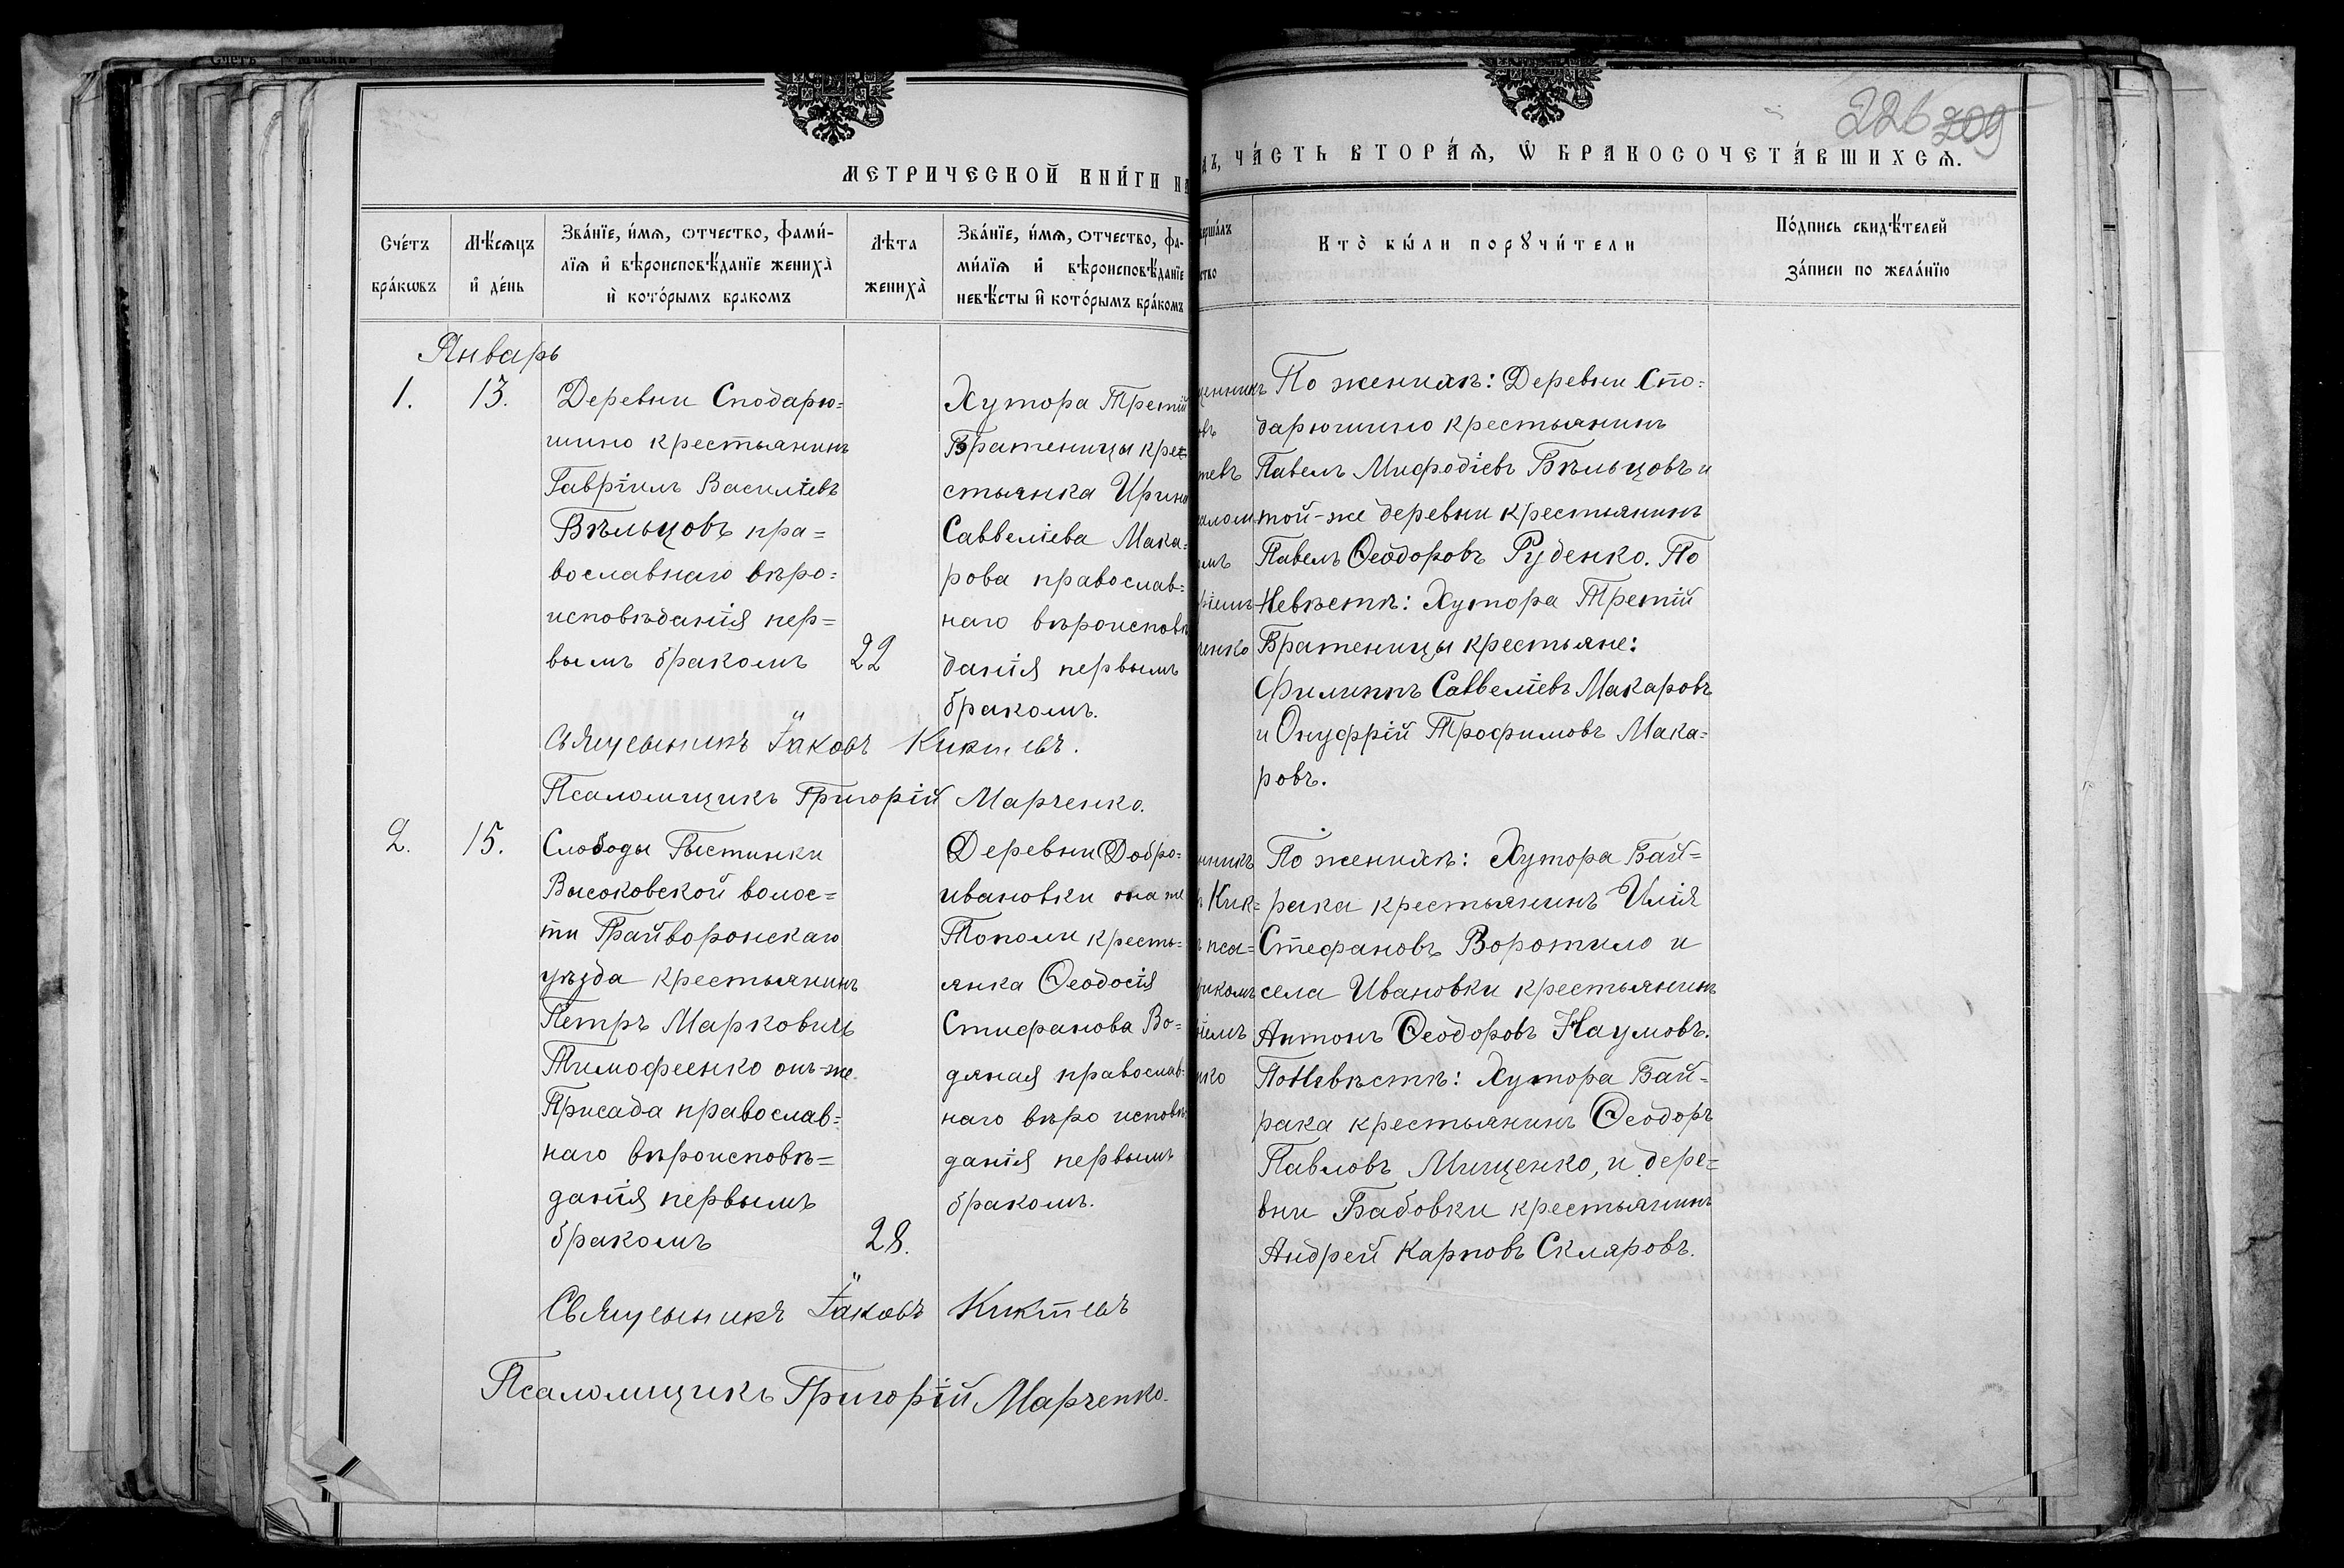 226 209
МЕТРИЧЕСКОЙ КНИ́ГИ Н
Ъ, ЧА́СТЬ ВТОРА́Ѧ, Ѡ҆ БРАКОСОЧЕТА́ВШИХСѦ.
Сче́тъ бра́кѡвъ
Мѣ́сѧцъ и҆ де́нь
Зва́нїе, и҆́мѧ, ѻтчество, фами́-
лїѧ и҆ вѣроисповѣ́данїе жениха̀
и҆ кото́рымъ бракомъ
Лѣта жениха̀
Зва́нїе, и҆́мѧ, ѻтчество, фа-
ми́лїѧ и҆ вѣроисповѣ́данїе
невѣ́сты и҆ кото́рымъ бра́комъ
ерша́лъ
ство
Кто̀ бы́ли порꙋчи́тели
По́дпись свидѣ́телей
за́писи по жела́нїю
Январь
1. 13.
Деревни Сподарю=
шино крестьянинъ
Гавріилъ Василіевъ
Бѣльцовъ пра=
вославнаго вѣро=
исповѣданія пер=
вымъ бракомъ 22
Хутора Третій
Братеницы кре
стьянка Ирина
Саввеліева Мака=
рова православ=
наго вѣроисповѣ
данія первымъ
бракомъ.
Священникъ Іаковъ Киктевъ.
Псаломщикъ Григорій Марченко.
щенникъ
овъ
тевъ
алом
омъ
ріемъ
ченко
По женихѣ: Деревни Спо=
дарюшино крестьянинъ
Павелъ Мифодіевъ Бѣльцовъ и
той-же деревни крестьянинъ
Павелъ Ѳеодоровъ Руденко. По
Невѣстѣ: Хутора Третій
Братеницы крестьяне:
Филиппъ Саввеліевъ Макаровъ
и Онуфрій Трофимовъ Мака=
ровъ.
2. 15.
Слободы Гыстинки
Высоковской волос=
ти Грайворонскаго
уѣзда крестьянинъ
Петръ Марковичъ
Тимофеенко онъ-же
Присада православ=
наго вѣроисповѣ=
данія первымъ
бракомъ 28.
Деревни Добро=
ивановки она же
Тополи кресть=
янка Ѳеодосія
Стефанова Во=
дяная православ=
наго вѣро исповѣ
данія первымъ
бракомъ.
Священникъ Іаковъ Киктевъ
Псаломщикъ Григорій Марченко.
нникъ
Кик=
пса=
икомъ
іемъ
нко
По женихѣ: Хутора Бай=
рака крестьянинъ Илія
Стефановъ Воротило и
села Ивановки крестьянинъ
Антонъ Ѳеодоровъ Наумовъ.
По Невѣстѣ: Хутора Бай=
рака крестьянинъ Ѳеодоръ
Павловъ Мищенко, и дере=
вни Бабовки крестьянинъ
Андрей Карповъ Скляровъ.